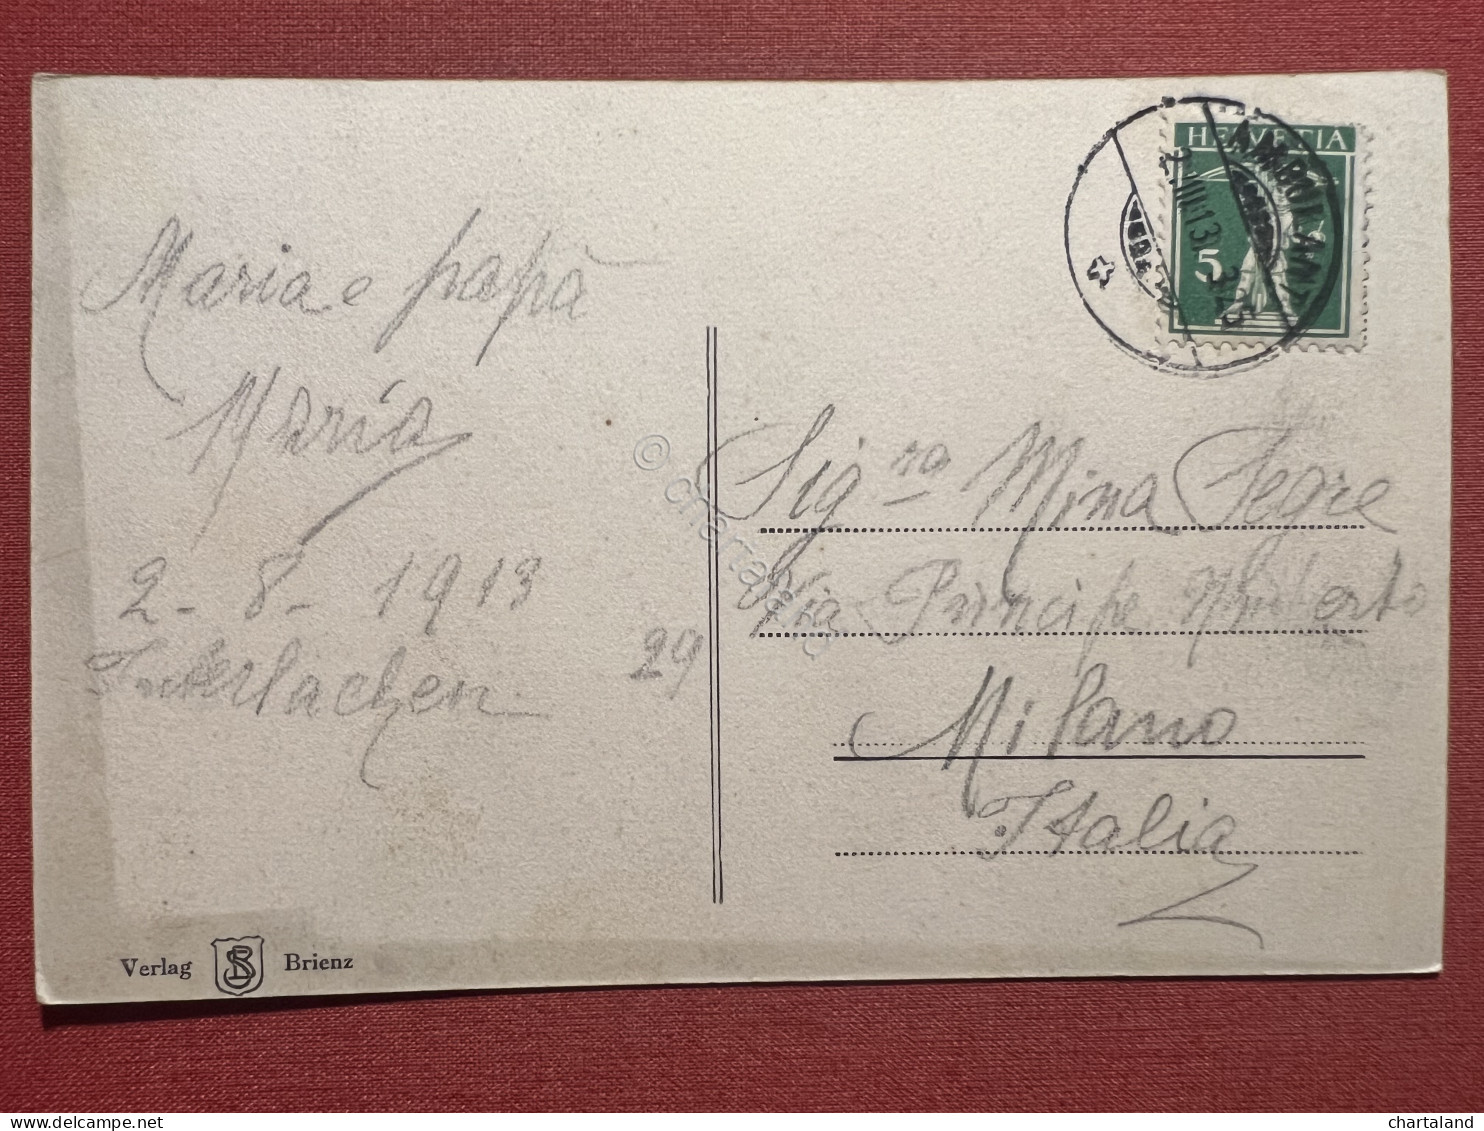 Maria e papà
Maria
2-8-1913
Interlachen
HELVETIA
5
2.VIII.13.
Sig.ra Mina Segre
Via Principe Umberto
29
Milano
Italia
Verlag SB Brienz
© chartaland
chartaland